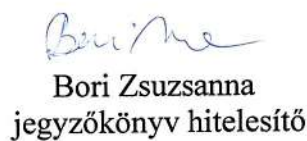 Bori Zsuzsanna
jegyzőkönyv hitelesítő